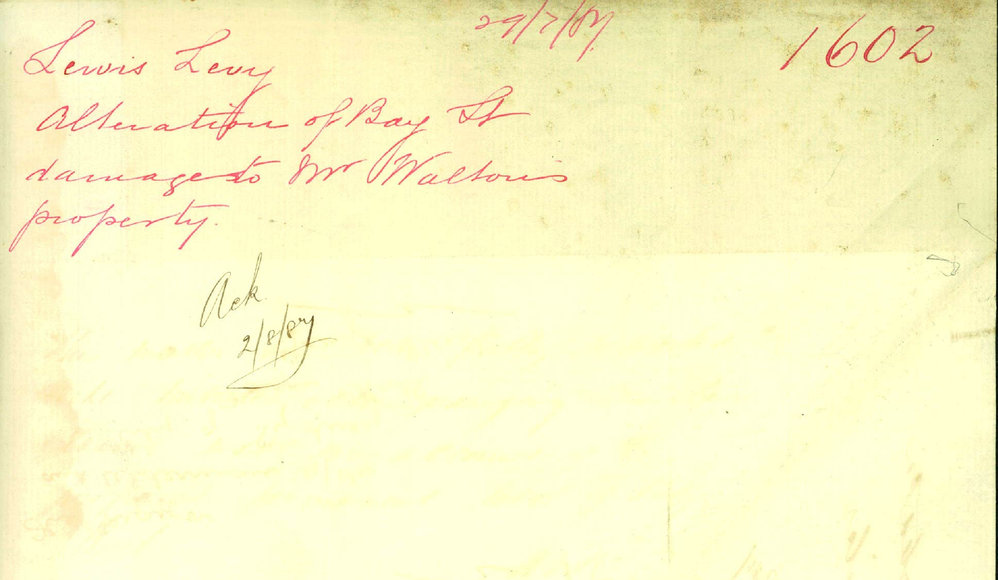 29/7/87.
1602
Lewis Levy
Alteration of Bay St
damage to Mr Walton's
property.
Ack
2/8/87